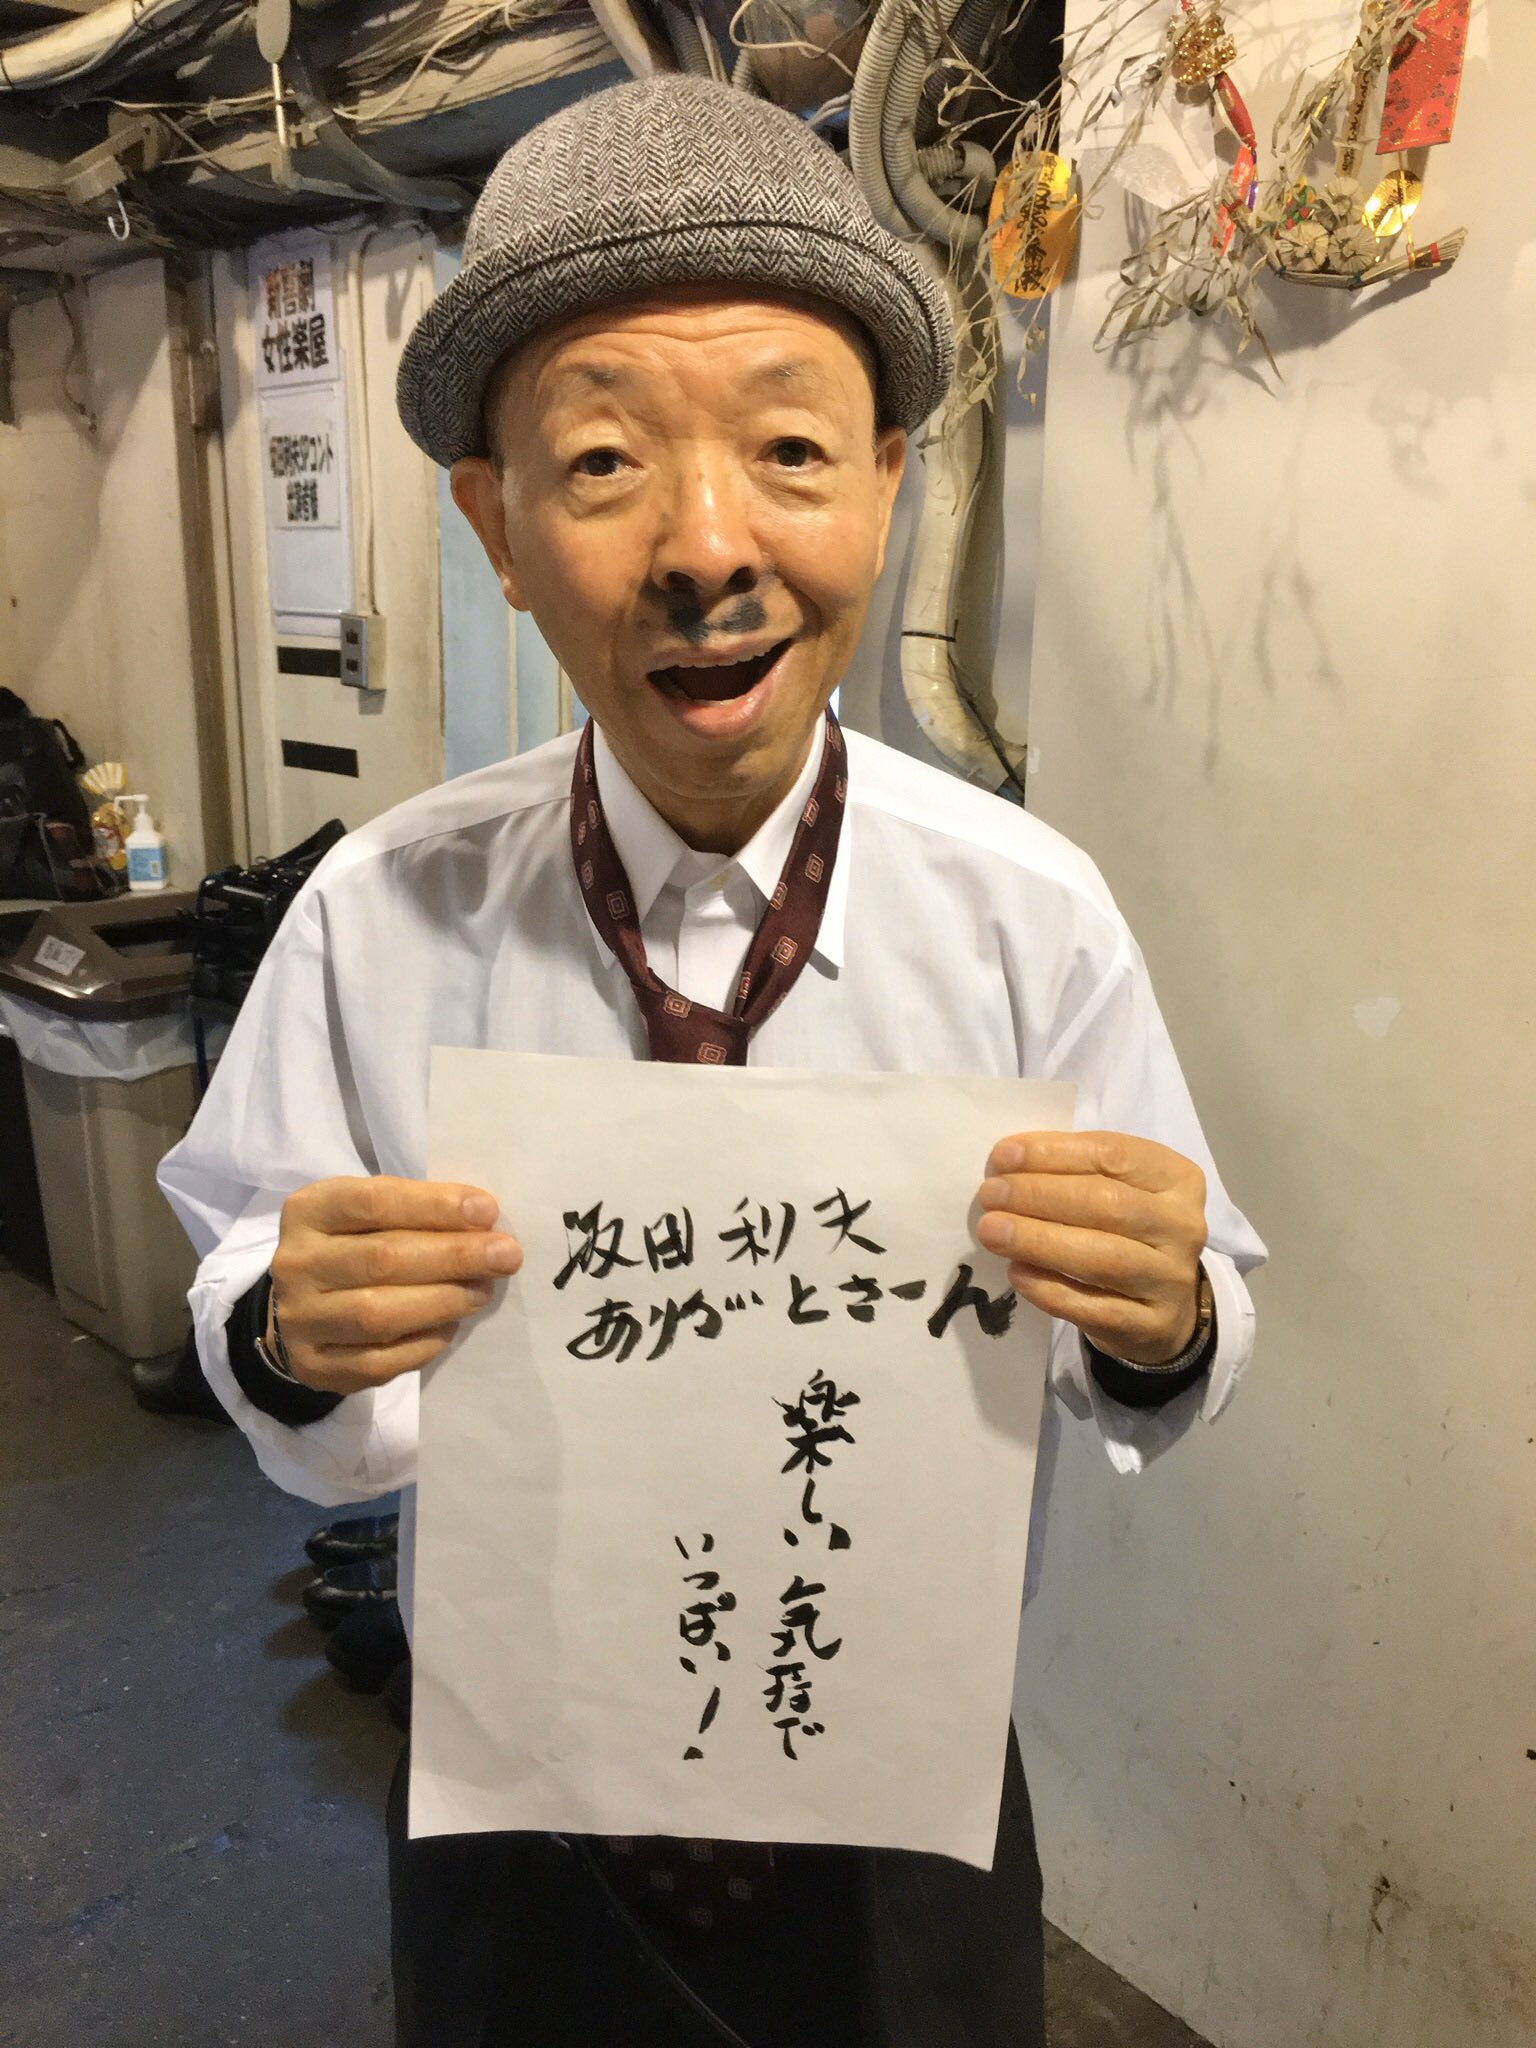 新喜劇
女性楽屋
坂田利夫SPコント
出演者様
坂田利夫
ありがとさーん
楽しい気持で
いっぱい!